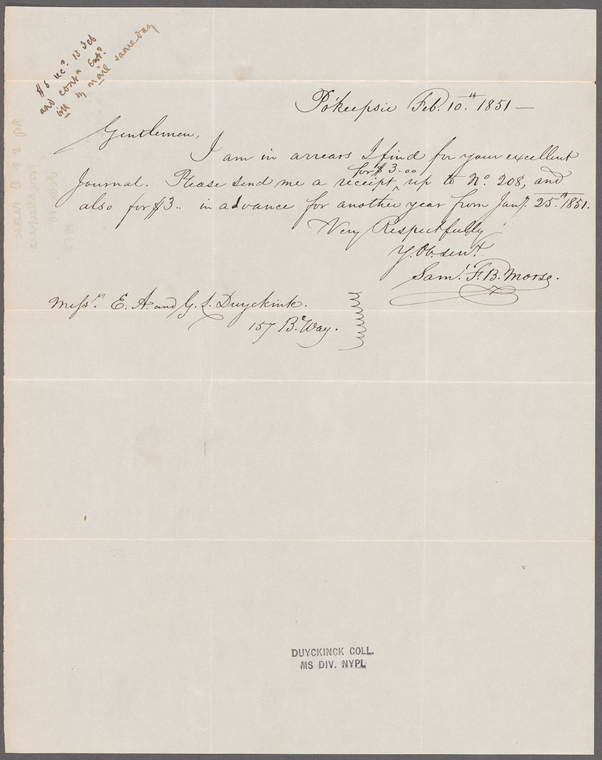 $6 rec? 13 Feb
and
bill by mail same day
Po'keepsie Feb. 10.th 1851—
Gentlemen,
I am in arrears I find for your excellent
for $3.00
Journal. Please send me a receipt ^ up to No. 208, and
also for $3.. in advance for another year from Jany. 25.th 1851.
Very Respectfully
Y. Ob. servt.
Saml. F. B. Morse.
Messrs. E. A. and G. L. Duyckink.
157 B.Way.
DUYCKINCK COLL.
MS DIV. NYPL